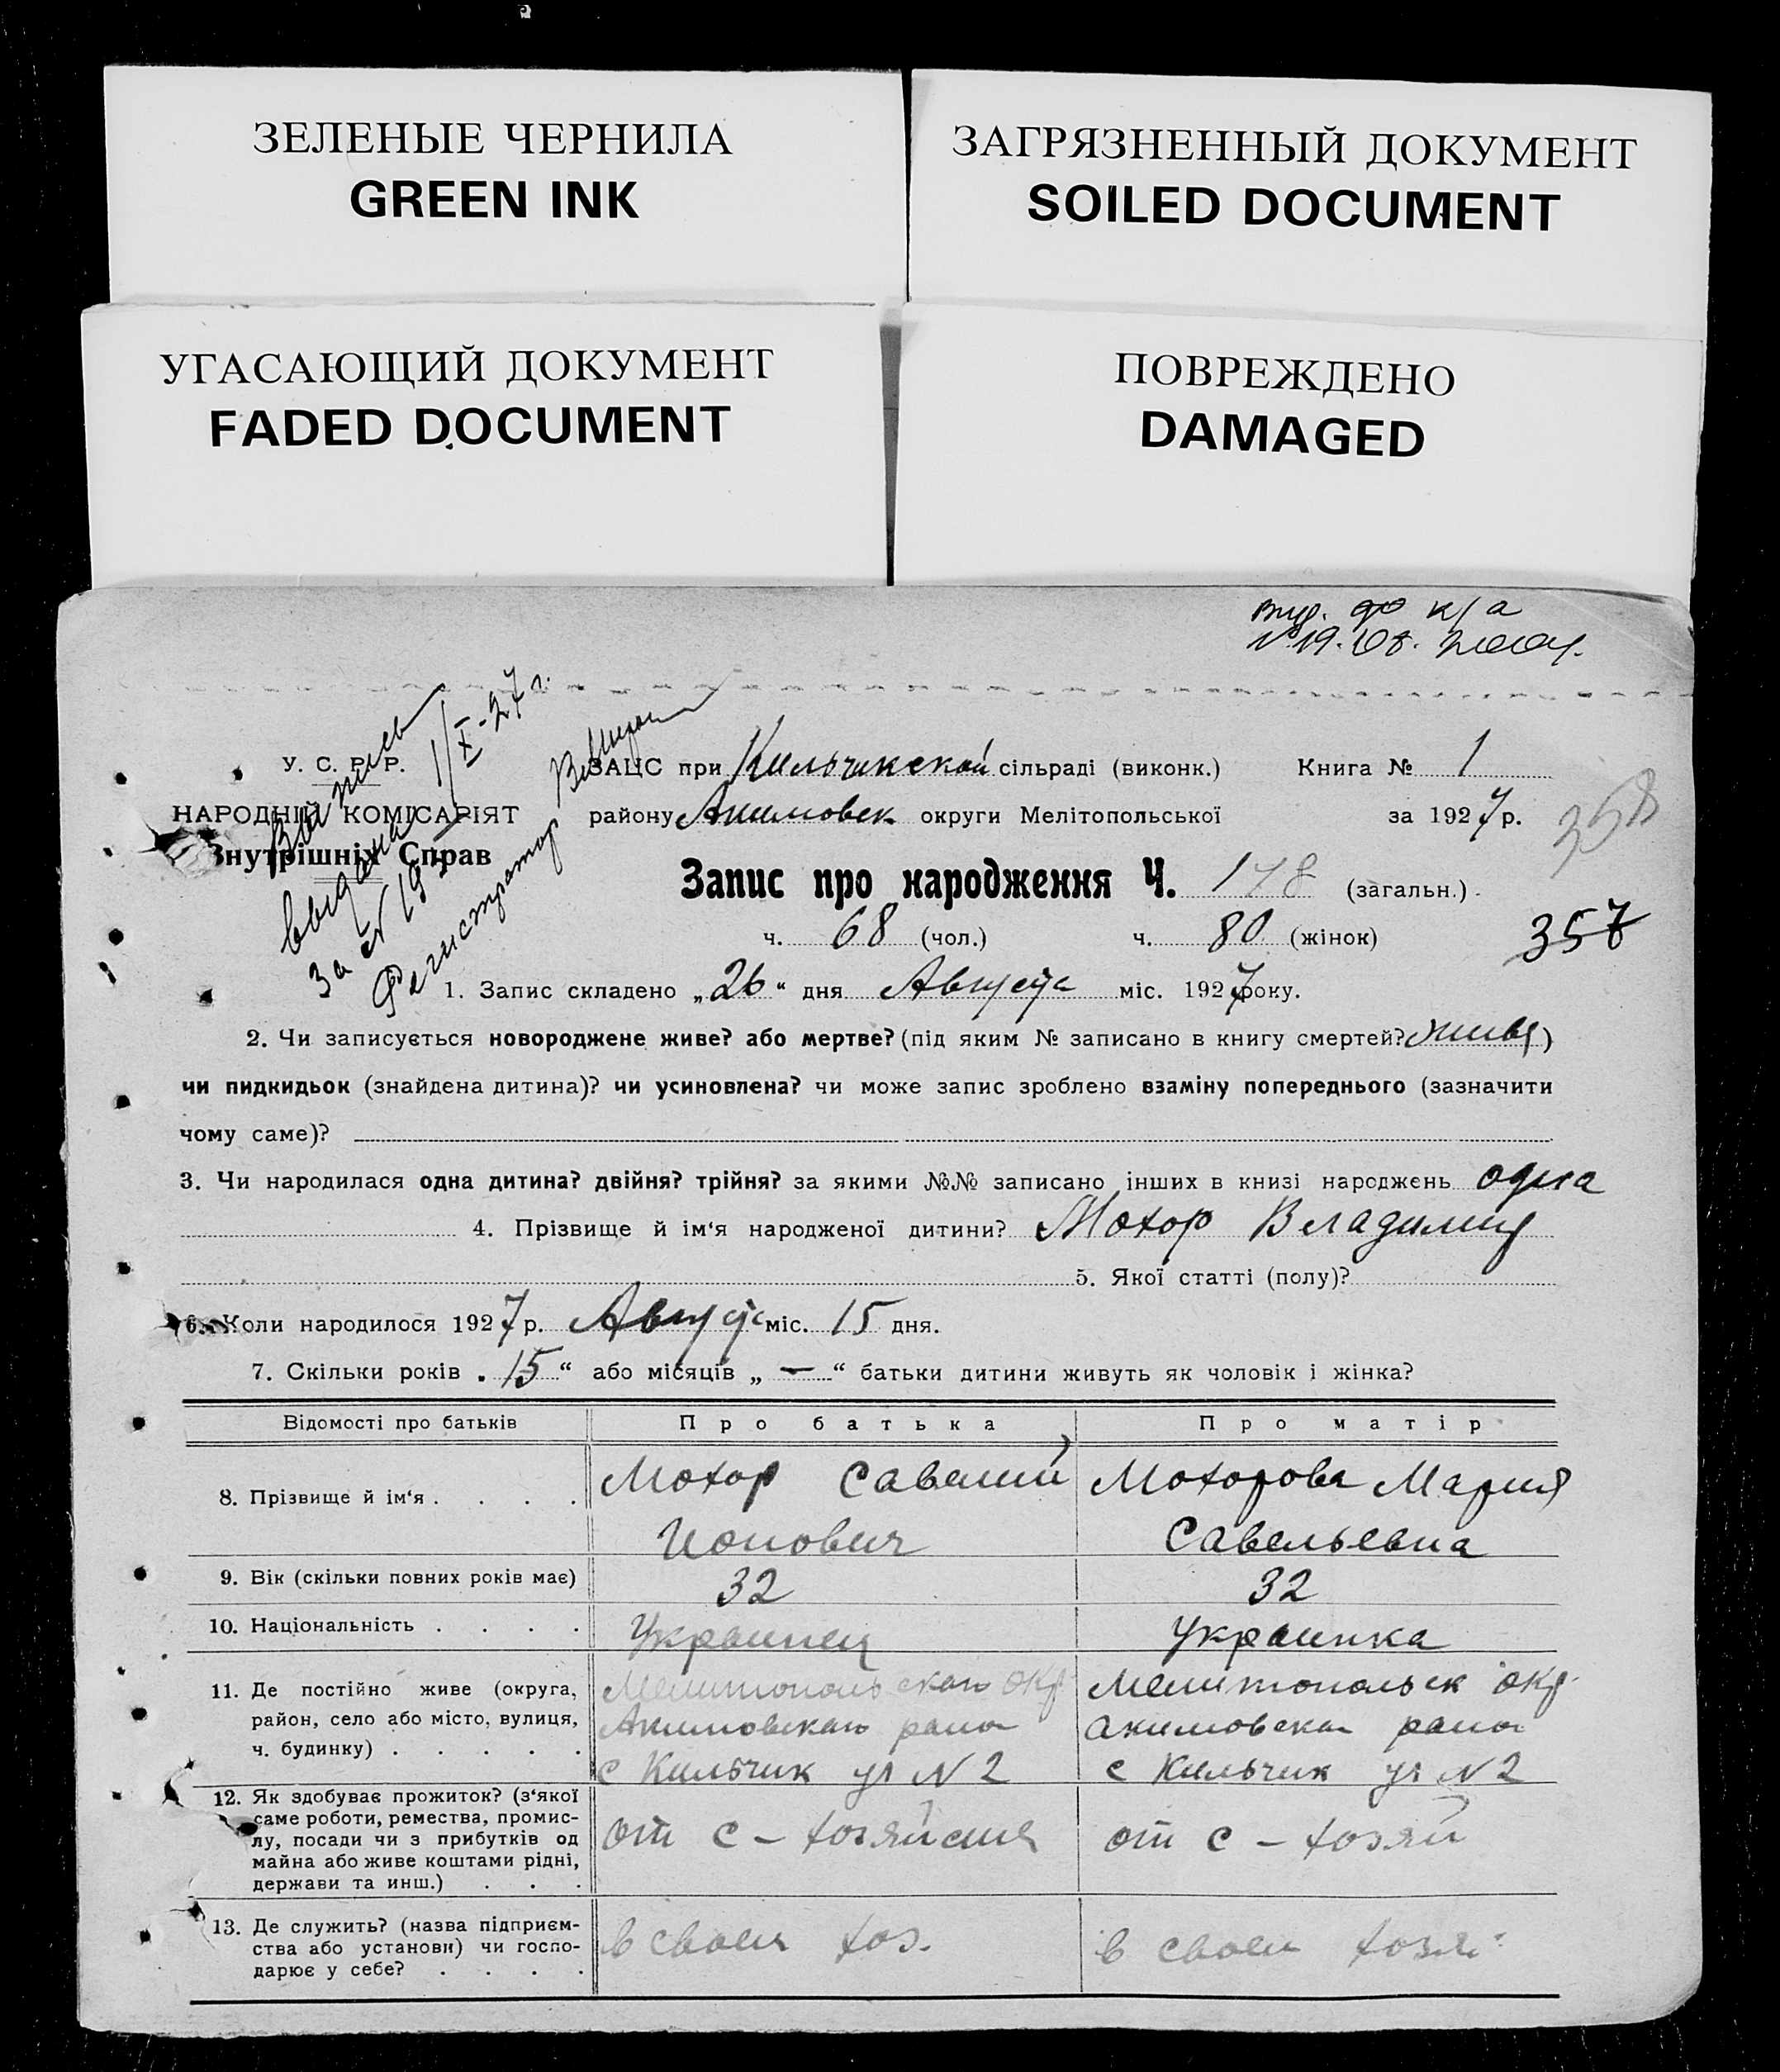 ЗЕЛЕНЫЕ ЧЕРНИЛА
GREEN INK
ЗАГРЯЗНЕННЫЙ ДОКУМЕНТ
SOILED DOCUMENT
УГАСАЮЩИЙ ДОКУМЕНТ
FADED DOCUMENT
ПОВРЕЖДЕНО
DAMAGED
к/а
Выпись 1/X-27 г.
выдана
за № 19
Регистратор
У. С. Р. Р.
НАРОДНІЙ КОМІСАРІЯТ
Внутрішніх Справ
ЗАЦС при Кильчикской сільраді (виконк.) Книга № 1
району Акимовск округи Мелітопольської за 1927 р.
358
Запис про народження Ч. 148 (загальн.)
ч. 68 (чол.) ч. 80 (жінок)
357
1. Запис складено „26“ дня Августа міс. 1927 року.
2. Чи записується новороджене живе? або мертве? (під яким № записано в книгу смертей? )
чи пидкидьок (знайдена дитина)? чи усиновлена? чи може запис зроблено взаміну попереднього (зазначити
чому саме)?
3. Чи народилася одна дитина? двійня? трійня? за якими №№ записано інших в книзі народжень одна
4. Прізвище й ім‘я народженої дитини? Мохор Владимир
5. Якої статті (полу)?
6. Коли народилося 1927 р. Август міс. 15 дня.
7. Скільки років „15“ або місяців „—“ батьки дитини живуть як чоловік і жінка?
Відомості про батьків Про батька Про матір
8. Прізвище й ім‘я . . . . Мохор Савелий Мохорова Мария
Ионович Савельевна
9. Вік (скільки повних років має) 32 32
10. Національність . . . . Украинец Украинка
11. Де постійно живе (округа, Мелитопольская окр Мелитопольск окр.
район, село або місто, вулиця, Акимовская район Акимовска район
ч. будинку) . . . . . с Кильчик ул N 2 с Кильчик ул N 2
12. Як здобуває прожиток? (з‘якої
саме роботи, ремества, промис-
лу, посади чи з прибутків од от с – хозяйства от с – хозяй
майна або живе коштами рідні,
держави та инш.) . . .
13. Де служить? (назва підприєм-
ства або установи) чи госпо- в своем хоз. в своем хозяй
дарює у себе? . . . .